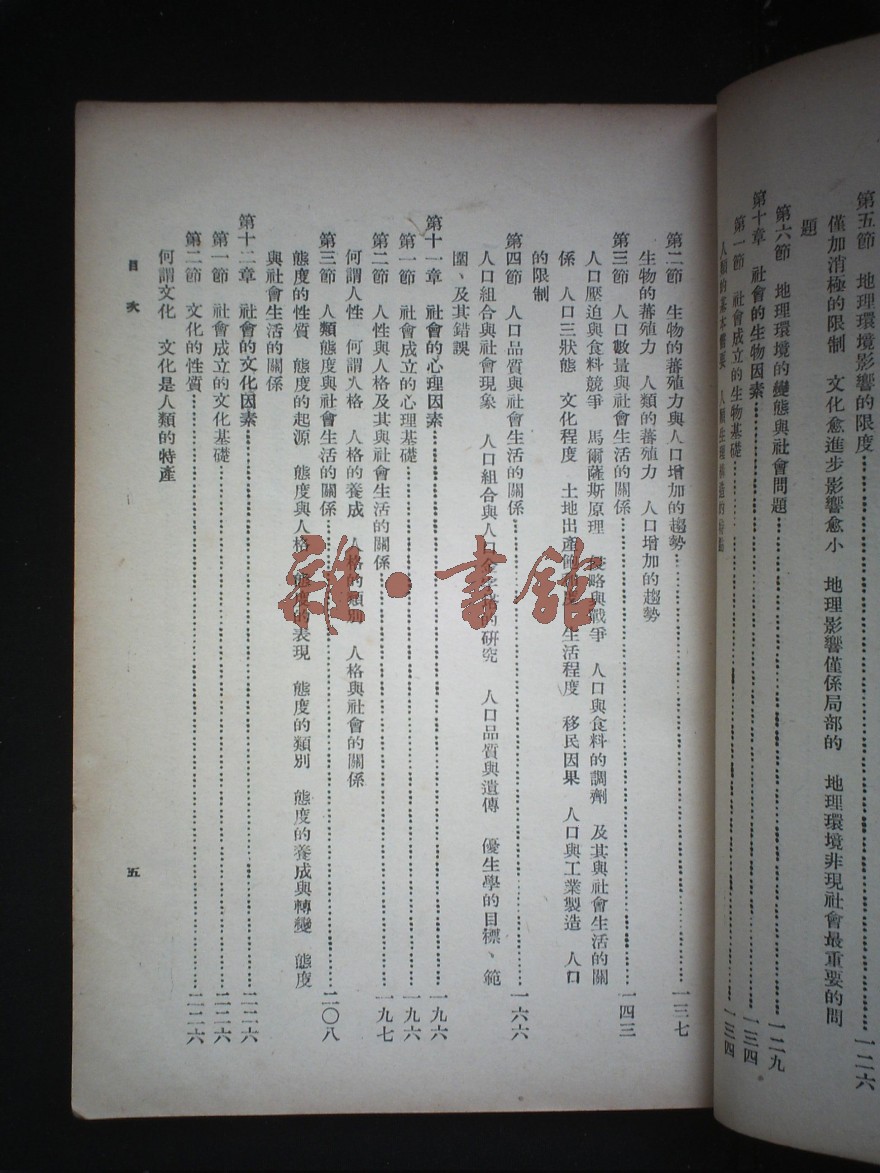 第五節 地理環境影響的限度……一二六
僅加消極的限制 文化愈進步影響愈小 地理影響僅係局部的 地理環境非現社會最重要的問
題
第六節 地理環境的變態與社會問題……一二九
第十章 社會的生物因素……一三四
第一節 社會成立的生物基礎……一三四
人類的基本需要 人類生理構造的特點
第二節 生物的蕃殖力與人口增加的趨勢……一三七
生物的蕃殖力 人類的蕃殖力 人口增加的趨勢
第三節 人口數量與社會生活的關係……一四三
人口壓迫與食料競爭 馬爾薩斯原理 侵略與戰爭 人口與食料的調劑 及其與社會生活的關
係 人口三狀態 文化程度 土地出產 生活程度 移民因果 人口與工業製造 人口
的限制
第四節 人口品質與社會生活的關係……一六六
人口組合與社會現象 人口組合與人口金字塔的研究 人口品質與遺傳 優生學的目標、範
圍、及其錯誤
第十一章 社會的心理因素……一九六
第一節 社會成立的心理基礎……一九六
第二節 人性與人格及其與社會生活的關係……一九七
何謂人性 何謂人格 人格的養成 人格的類別 人格與社會的關係
第三節 人類態度與社會生活的關係……二〇八
態度的性質 態度的起源 態度與人格 態度的表現 態度的類別 態度的養成與轉變 態度
與社會生活的關係
第十二章 社會的文化因素……二二六
第一節 社會成立的文化基礎……二二六
第二節 文化的性質……二二六
何謂文化 文化是人類的特產
目次
五
雜·書館